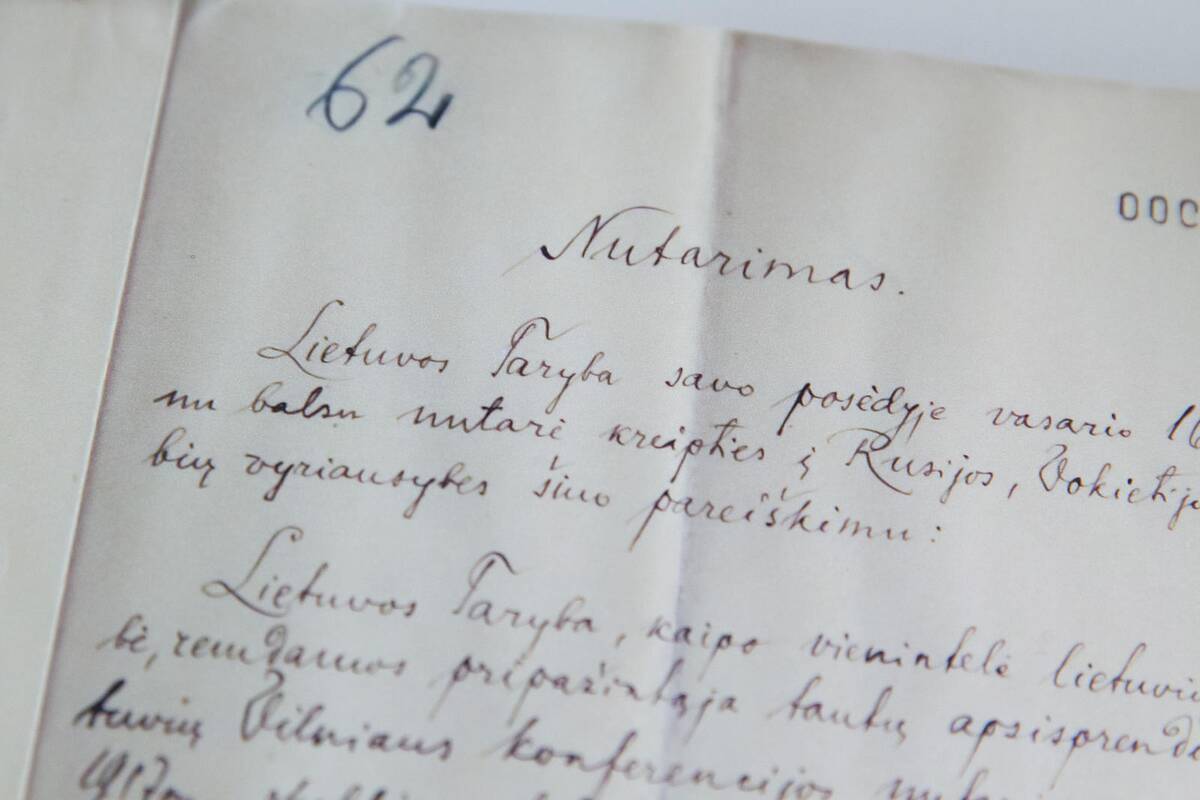 62
00
Nutarimas.
Lietuvos Taryba savo posėdyje vasario 16
nu balsu nutarė kreipties į Rusijos, Vokietijo
bių vyriausybes šiuo pareiškimu:
Lietuvos Taryba, kaipo vienintelė lietuvių
bė, remdamos pripažintąja tautų apsisprend
tuvių Vilniaus konferencijos